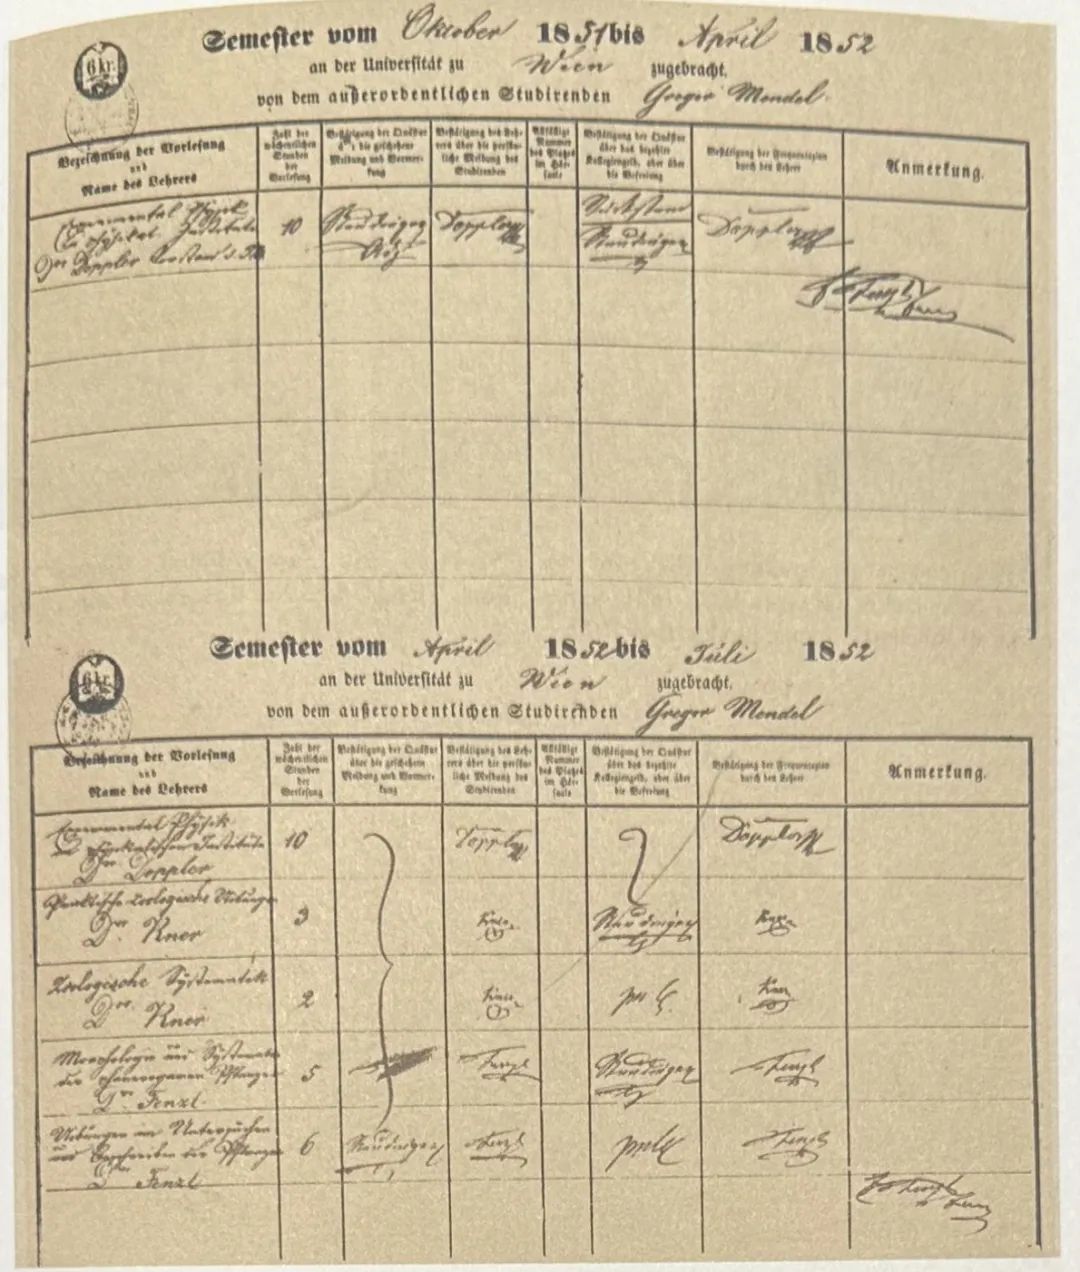 6 kr.
Semester vom Oktober 1851 bis April 1852
an der Universität zu Wien zugebracht.
von dem außerordentlichen Studirenden Gregor Mendel
Bezeichnung der Vorlesung
und
Name des Lehrers
Zahl der
wöchentlichen
Stunden
der
Vorlesung
Bestätigung der Quästur
über die geschehene
Meldung und Vormer-
kung
Bestätigung des Leh-
rers über die persön-
liche Meldung des
Studirenden
Allfällige
Nummer
des Platzes
im Hör-
saale
Bestätigung der Quästur
über das bezahlte
Kollegiengeld, oder über
die Befreiung
Bestätigung der Frequentazion
durch den Lehrer
Anmerkung.
Experimental Physik
physikal. Institute
Doppler
10
Doppler
Doppler
Fenzl
6 kr.
Semester vom April 1852 bis Juli 1852
an der Universität zu Wien zugebracht.
von dem außerordentlichen Studirenden Gregor Mendel
Bezeichnung der Vorlesung
und
Name des Lehrers
Zahl der
wöchentlichen
Stunden
der
Vorlesung
Bestätigung der Quästur
über die geschehene
Meldung und Vormer-
kung
Bestätigung des Leh-
rers über die persön-
liche Meldung des
Studirenden
Allfällige
Nummer
des Platzes
im Hör-
saale
Bestätigung der Quästur
über das bezahlte
Kollegiengeld, oder über
die Befreiung
Bestätigung der Frequentazion
durch den Lehrer
Anmerkung.
Experimental Physik
physikalischen Institute
Doppler
10
Doppler
Doppler
Praktische zoologische Uebungen
Dr. Kner
3
Kner
Kner
Zoologische Systematik
Dr. Kner
2
Kner
Kner
Morphologie und Systematik
der phanerogamen Pflanzen
Dr. Fenzl.
5
Fenzl
Fenzl
Uebungen im Untersuchen
und Beschreiben der Pflanzen
Dr. Fenzl
6
Fenzl
Fenzl
Fenzl